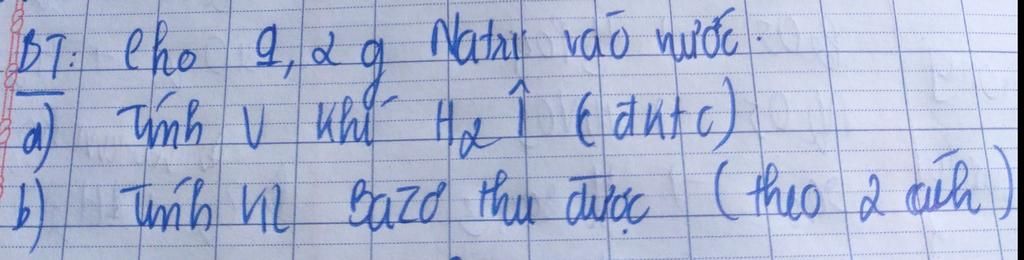 BT: Cho 9,2 g Natri vào nước.
a) Tính V khí H2↑ (đktc)
b) Tính Kl Bazơ thu được (theo 2 cách)